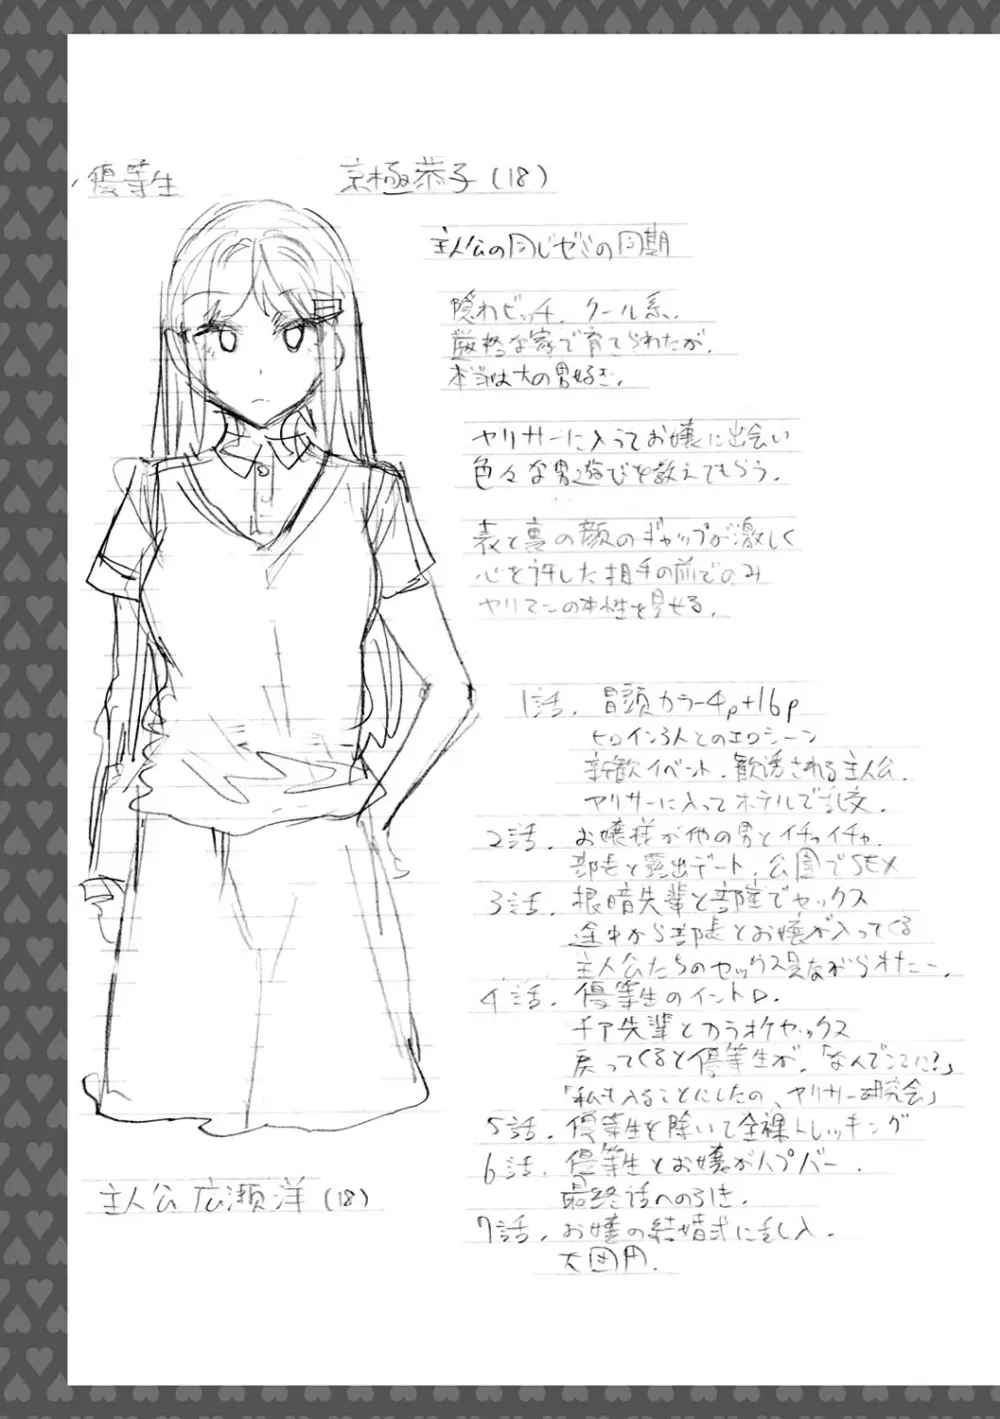 優等生
京極恭子(18)
主人公の同じゼミの同期
隠れビッチ、クール系、
厳格な家で育てられたが、
本当は大の男好き。
ヤリサーに入ってお嬢に出会い
色々な男遊びを教えてもらう。
表と裏の顔のギャップが激しく
心を許した相手の前でのみ
ヤリマンの本性を見せる。
1話、冒頭カラー4p+16p
ヒロイン3人とのエロシーン
新歓イベント、歓誘される主人公、
ヤリサーに入ってホテルで乱交。
2話、お嬢様が他の男とイチャイチャ、
部長と露出デート、公園でSEX
3話、根暗先輩と部室でセックス
途中から部長とお嬢が入ってくる
主人公たちのセックス見ながらオナニー、
4話、優等生のイントロ、
チア先輩とカラオケセックス
戻ってくると優等生が、「なんでここに?」
「私も入ることにしたの、ヤリサー研究会」
5話、優等生を除いて全裸トレッキング
6話、優等生とお嬢がハプバー、
最終話への引き。
7話、お嬢の結婚式に乱入、
大団円。
主人公 広瀬洋(18)